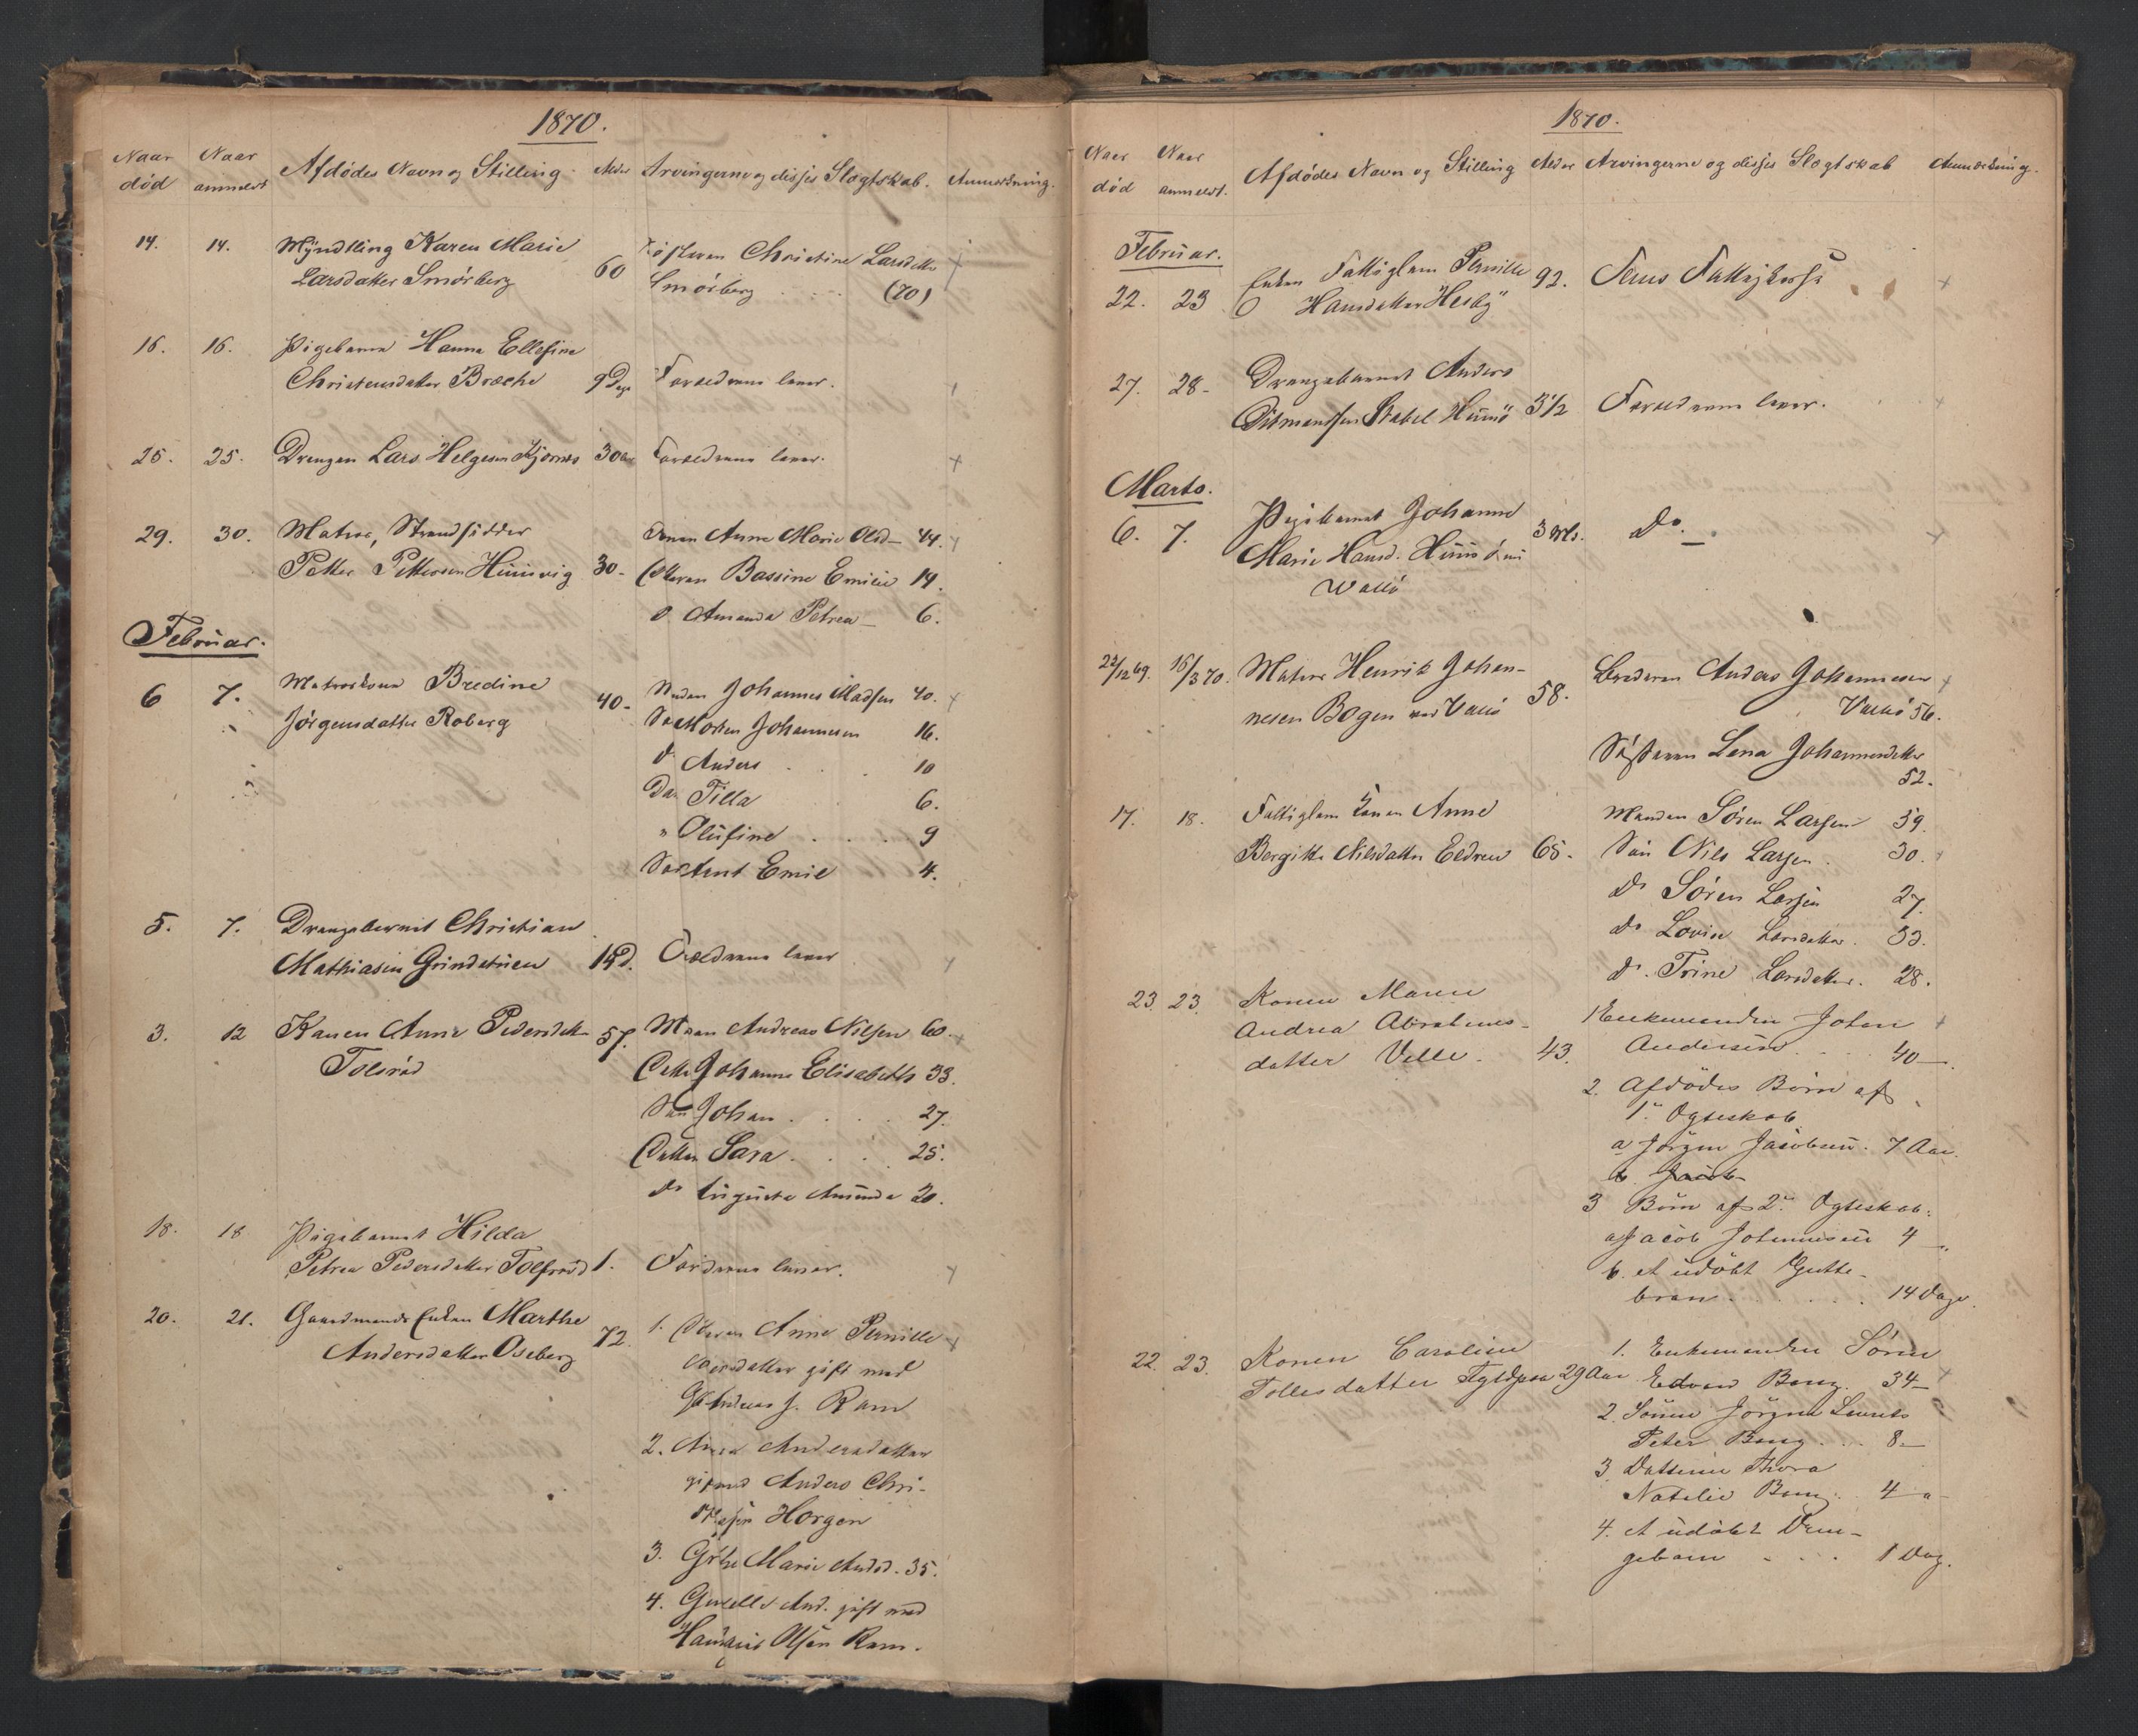 1870.
Naar død Naar anmeldt Afdødes Navn og Stilling Alder Arvingerne og disses Slægtskab. Anmærkning.
14. 14. Myndling Karen Marie Søsteren Christine Larsdatter +
Larsdatter Smørberg 60 Smørberg (70)
16. 16. Pigebarn Hanna Ellefine
Christensdatter Bræche 9 Dage Forældrene lever.
25. 25. Drengen Lars Helgesen Kjørnes 30 Forældrene lever. +
29. 30. Matros, Strandsidder Konen Anne Marie Olsd 44.
Petter Pettersen Huusvig 30- Datteren Bassine Emilie 14.
Do Amanda Petrea 6.
Februar.
6 7. Matroskone Bredine Manden Johannes Madsen 40.
Jørgensdatter Roberg 40- Søn Morten Johannesen 16.
Do Anders 10
Dat Tilla 6.
" Olufine 9
Søn Emil 4.
5. 7. Drengebarnet Christian
Mathiasen Grindstuen 14 D. Forældrene lever
3. 12 Konen Anne Pedersdatter 57. Mann Andreas Nilsen 60.
Tolsrød Datter Johanne Elisabeth 33.
Søn Johan 27.
Datter Sara 25.
Do Augusta Amunda 20.
18. 18 Pigebarnet Hilda
Petrea Pedersdatter Tolfsrød 1. Forældrene lever.
20. 21. Gaardmands Enken Marthe 1. Datteren Anne Pernille +
Andersdatter Oseberg 72 Andersdatter gift med
Andreas J. Ram
2. Andersdatter
gift med Anders Chri-
stensen Horgen
3. Gøthe Marie Andsd. 35.
4. And. gift med
Olsen Ram.
1870.
Naar død Naar anmeldt. Afdødes Navn og Stilling Alder Arvingerne og disses Slægtskab Anmærkning.
Februar.
22. 23 Enken Fattiglem Pernille 92. Tems Fattigkasse +
Hansdatter Hesby
27. 28- Drengebarnet Anders
Ditmanssen Stabel Huusø 3½ Forældrene lever.
Marts.
6. 7. Pigebarnet Johanne 3 Do
Marie Hansd. Huusø
Vallø
22/12 69. 16/3 70. Matros Henrik Johan- Broderen Anders Johannesen +
nesen Bogen ved Vallø 58. Vallø 56.
Søsteren Lena Johannesdatter
52.
17. 18. Fattiglem Konen Anne Manden Søren Larsen 59.
Bergitte Nilsdatter Eldren 65- Søn Nils Larsen 30.
Do Søren Larsen 27.
Do Lovise Larsdatter. 33.
Do Trine Larsdatter. 28.
23. 23. Konen Maren 1 Enkemanden Johan +
Andrea Abrahams- Andersen 40
datter Velle. 43. 2. Afdødes Børn af
1. Ægteskab
a Jørgen Jacobsen. 7 Aar.
b Jacob
3 Børn af 2. Ægteskab.
a Jacob Johannesen 4 "
b. et udøbt Gutte-
barn 14 Dage.
22. 23. Konen Caroline 1. Enkemanden Søren +
Tollesdatter 29 Aar Edvard Bang. 34-
2. Sønnen Jørgen Lauritz
Peter Bang 8-
3 Datteren Thora
Natalie Bang 4 "
4. et udøbt Dren-
gebarn 1 Dag.